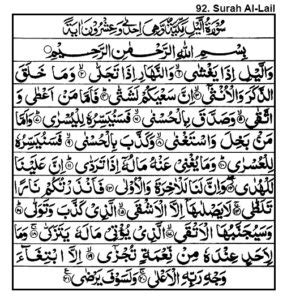 92. Surah Al-Lail
سُورَةُ الَّيْلِ مَكِّيَّةٌ وَّهِيَ اِحْدٰى وَعِشْرُوْنَ اٰيَةً
بِسْمِ اللّٰهِ الرَّحْمٰنِ الرَّحِيْمِ
وَالَّيْلِ اِذَا يَغْشٰى ۝١ وَالنَّهَارِ اِذَا تَجَلّٰى ۝٢ وَمَا خَلَقَ
الذَّكَرَ وَالْاُنْثٰى ۝٣ اِنَّ سَعْيَكُمْ لَشَتّٰى ۝٤ فَاَمَّا مَنْ اَعْطٰى وَ
اتَّقٰى ۝٥ وَصَدَّقَ بِالْحُسْنٰى ۝٦ فَسَنُيَسِّرُهٗ لِلْيُسْرٰى ۝٧ وَاَمَّا
مَنْۢ بَخِلَ وَاسْتَغْنٰى ۝٨ وَكَذَّبَ بِالْحُسْنٰى ۝٩ فَسَنُيَسِّرُهٗ
لِلْعُسْرٰى ۝١٠ وَمَا يُغْنِيْ عَنْهُ مَالُهٗٓ اِذَا تَرَدّٰى ۝١١ اِنَّ عَلَيْنَا
لَلْهُدٰى ۝١٢ وَاِنَّ لَنَا لَلْاٰخِرَةَ وَالْاُوْلٰى ۝١٣ فَاَنْذَرْتُكُمْ نَارًا
تَلَظّٰى ۝١٤ لَا يَصْلٰىهَآ اِلَّا الْاَشْقَى ۝١٥ الَّذِيْ كَذَّبَ وَتَوَلّٰى ۝١٦
وَسَيُجَنَّبُهَا الْاَتْقَى ۝١٧ الَّذِيْ يُؤْتِيْ مَالَهٗ يَتَزَكّٰى ۝١٨ وَمَا
لِاَحَدٍ عِنْدَهٗ مِنْ نِّعْمَةٍ تُجْزٰٓى ۝١٩ اِلَّا ابْتِغَآءَ
وَجْهِ رَبِّهِ الْاَعْلٰى ۝٢٠ وَلَسَوْفَ يَرْضٰى ۝٢١